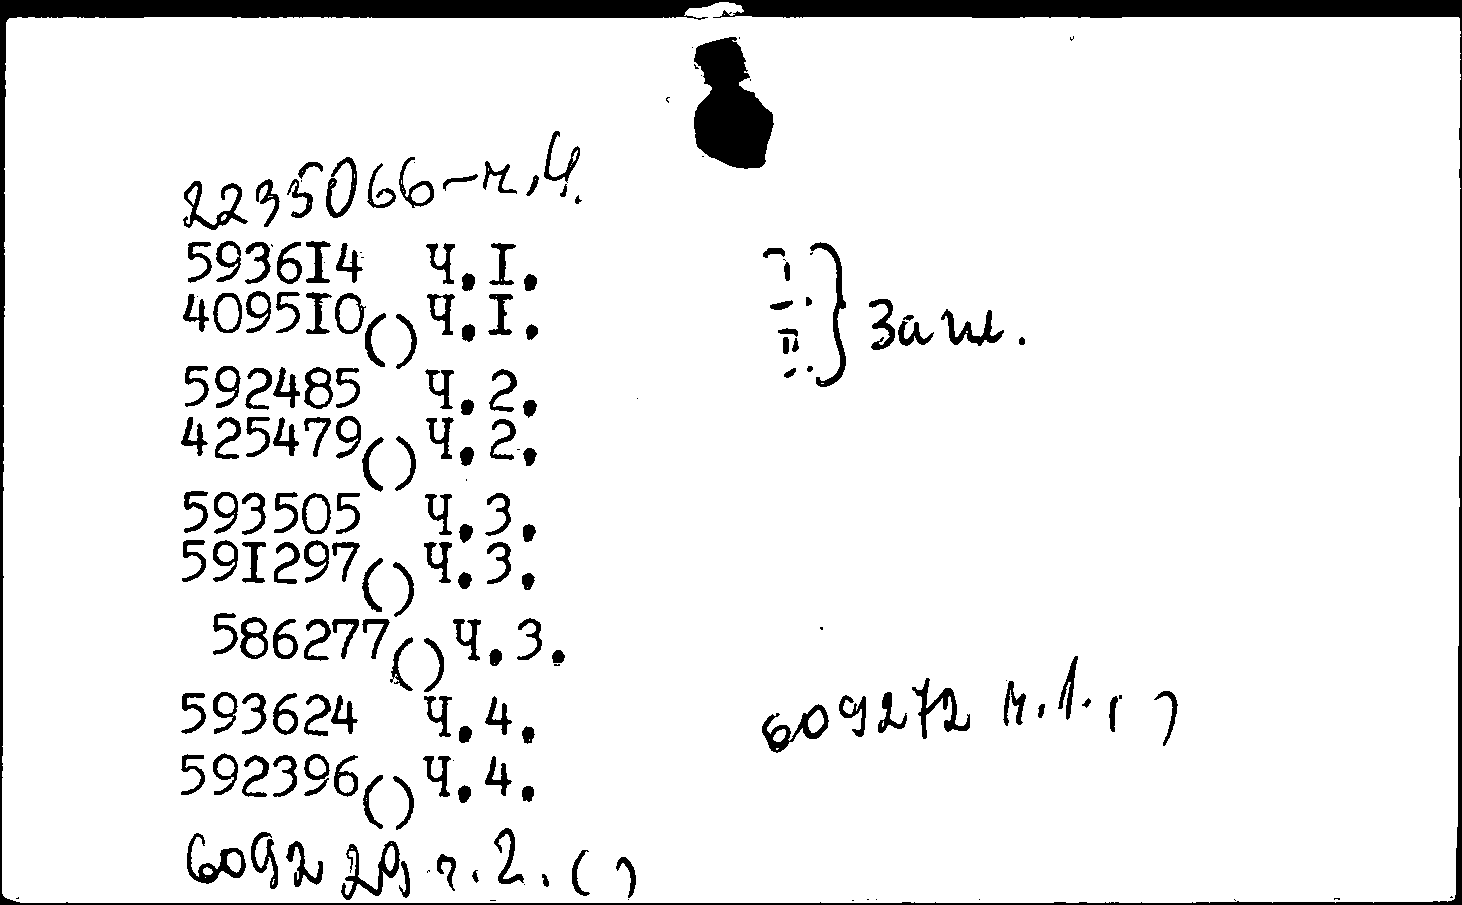 2235066-ч.4.
5936I4 Ч.I.
4095I0() Ч.I.
592485 Ч.2.
425479() Ч.2.
593505 Ч.3.
59I297() Ч.3.
586277() Ч.3.
593624 Ч.4.
592396() Ч.4.
609229 ч.2.()
609272 ч.1.()